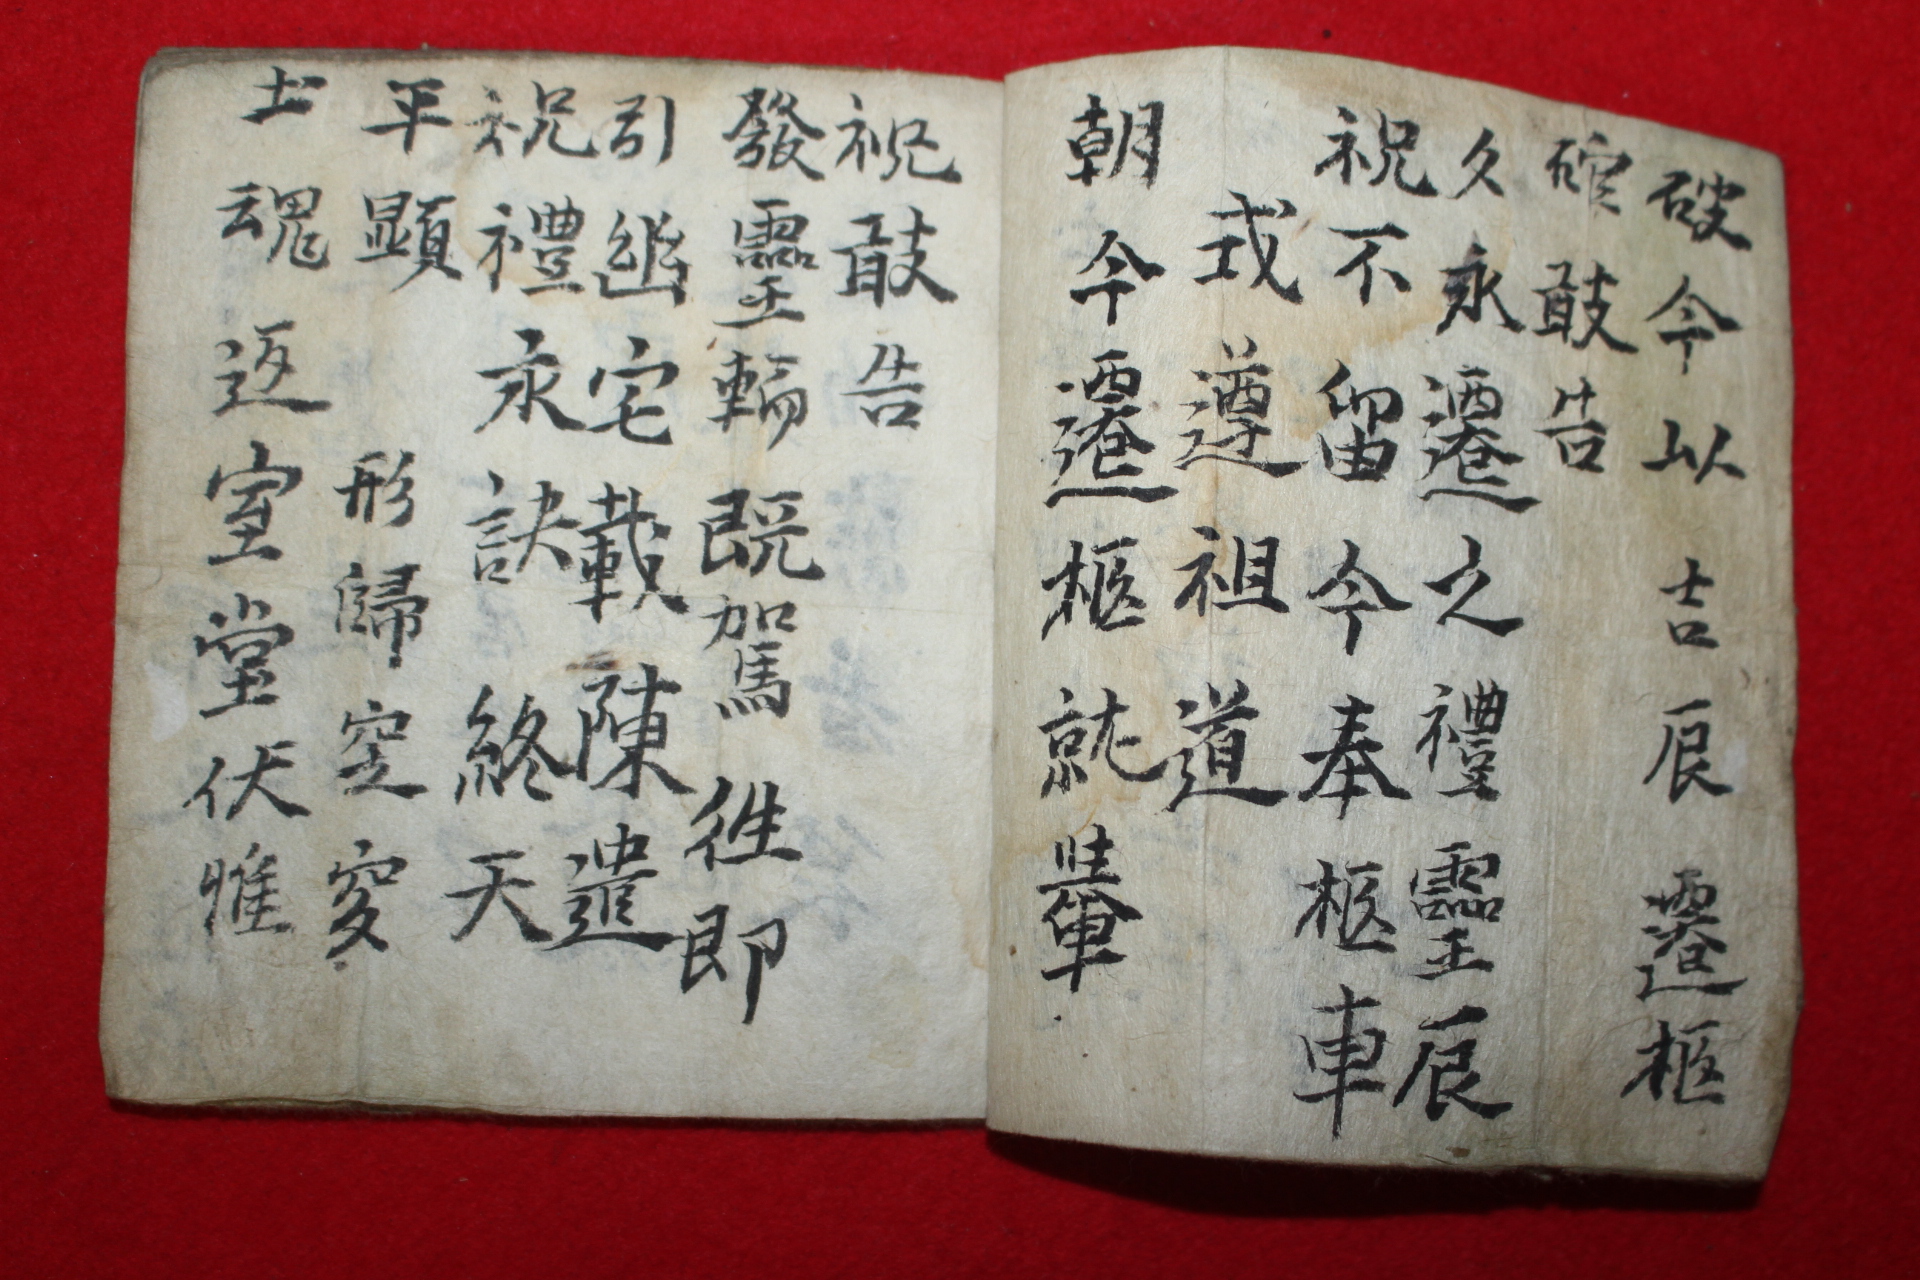 破今以吉辰遷柩
破敢告
久永遷之禮靈辰
祝不留今奉柩車
式遵祖道
朝今遷柩就轝
祝敢告
發靈輀既駕徃即
引幽宅載陳遣
祝禮永訣終天
平顯形歸窀穸
土魂返室堂伏惟